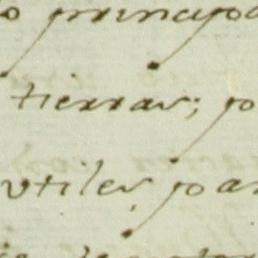 principa
tierras; p
utiles, pa